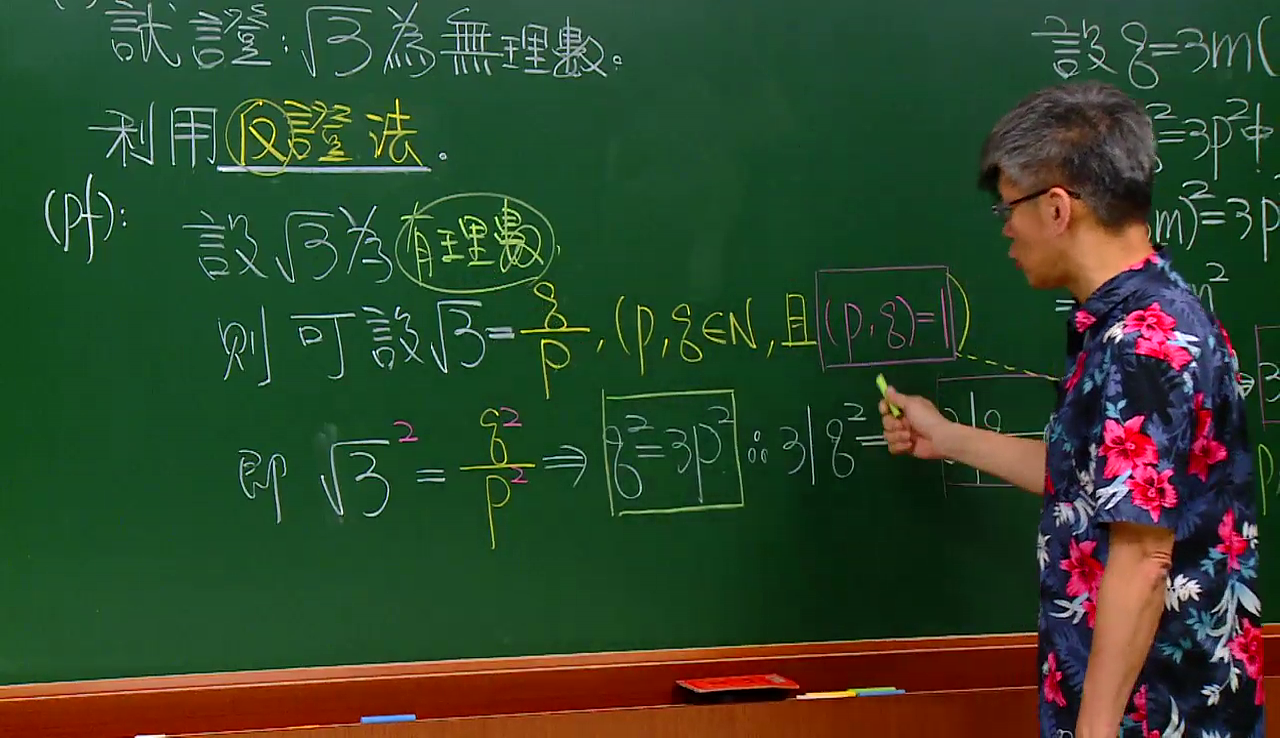 試證:√3為無理數。
利用反證法.
(pf):
設√3為有理數,
則可設√3=q/p,(p,q∈N,且(p,q)=1)
即 √3² = q²/p² ⇒ q²=3p² ∴ 3|q² ⇒ 3|q
設q=3m(
²=3p²中
m)²=3p